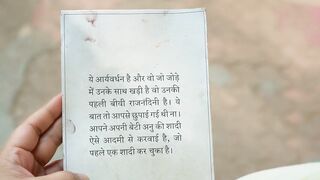 ये आर्यवर्धन है और वो जो जोड़े
में उनके साथ खड़ी है वो उनकी
पहली बीवी राजनंदिनी है। ये
बात तो आपसे छुपाई गई थी ना।
आपने अपनी बेटी अनु की शादी
ऐसे आदमी से करवाई है, जो
पहले एक शादी कर चुका है।